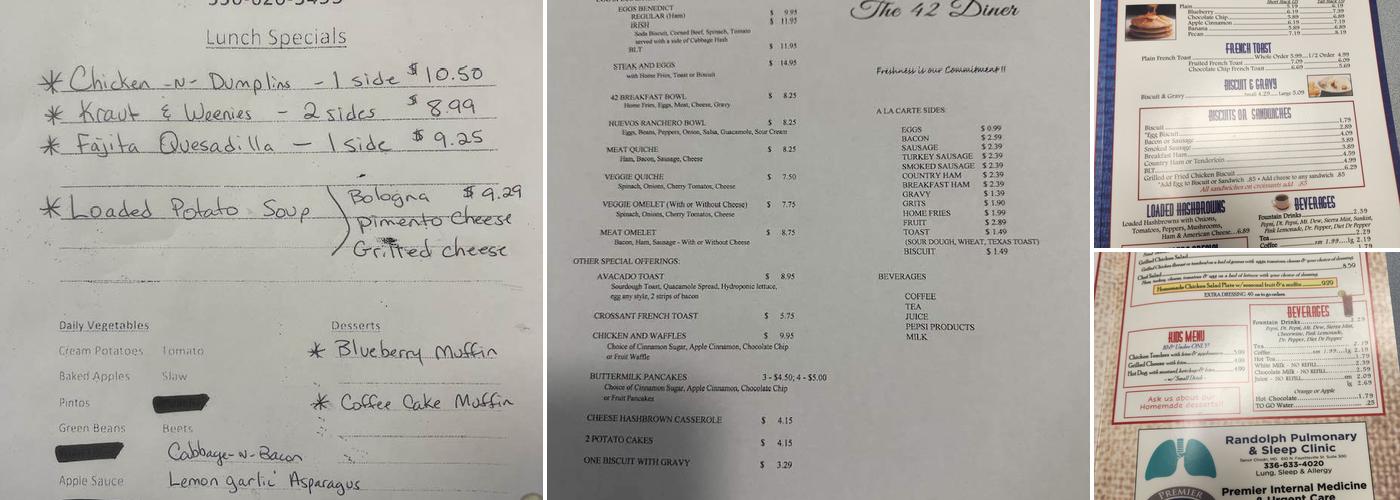 336-626-3435
Lunch Specials
* Chicken -N- Dumplins - 1 side $10.50
* Kraut & Weenies - 2 sides $8.99
* Fajita Quesadilla - 1 side $9.25
* Loaded Potato Soup
Bologna $9.29
pimento cheese
Grilled cheese
Daily Vegetables
Cream Potatoes Tomato
Baked Apples Slaw
Pintos
Green Beans Beets
Cabbage-N-Bacon
Apple Sauce Lemon garlic Asparagus
Desserts
* Blueberry Muffin
* Coffee Cake Muffin
EGGS BENEDICT
REGULAR (Ham) $ 9.95
IRISH $ 11.95
Soda Biscuit, Corned Beef, Spinach, Tomato
served with a side of Cabbage Hash
BLT $ 11.95
STEAK AND EGGS $ 14.95
with Home Fries, Toast or Biscuit
42 BREAKFAST BOWL $ 8.25
Home Fries, Eggs, Meat, Cheese, Gravy
HUEVOS RANCHERO BOWL $ 8.25
Eggs, Beans, Peppers, Onion, Salsa, Guacamole, Sour Cream
MEAT QUICHE $ 8.25
Ham, Bacon, Sausage, Cheese
VEGGIE QUICHE $ 7.50
Spinach, Onions, Cherry Tomatoes, Cheese
VEGGIE OMELET (With or Without Cheese) $ 7.75
Spinach, Onions, Cherry Tomatoes, Cheese
MEAT OMELET $ 8.75
Bacon, Ham, Sausage - With or Without Cheese
OTHER SPECIAL OFFERINGS:
AVACADO TOAST $ 8.95
Sourdough Toast, Quacamole Spread, Hydroponic lettuce,
egg any style, 2 strips of bacon
CROSSANT FRENCH TOAST $ 5.75
CHICKEN AND WAFFLES $ 9.95
Choice of Cinnamon Sugar, Apple Cinnamon, Chocolate Chip
or Fruit Waffle
BUTTERMILK PANCAKES 3 - $4.50; 4 - $5.00
Choice of Cinnamon Sugar, Apple Cinnamon, Chocolate Chip
or Fruit Pancakes
CHEESE HASHBROWN CASSEROLE $ 4.15
2 POTATO CAKES $ 4.15
ONE BISCUIT WITH GRAVY $ 3.29
The 42 Diner
Freshness is our Commitment !!
A LA CARTE SIDES:
EGGS $ 0.99
BACON $ 2.59
SAUSAGE $ 2.39
TURKEY SAUSAGE $ 2.39
SMOKED SAUSAGE $ 2.39
COUNTRY HAM $ 2.39
BREAKFAST HAM $ 2.39
GRAVY $ 1.39
GRITS $ 1.90
HOME FRIES $ 1.99
FRUIT $ 2.89
TOAST $ 1.49
(SOUR DOUGH, WHEAT, TEXAS TOAST)
BISCUIT $ 1.49
BEVERAGES
COFFEE
TEA
JUICE
PEPSI PRODUCTS
MILK
Plain 5.19 6.19
Blueberry 6.19 7.39
Chocolate Chip 5.89 6.89
Apple Cinnamon 6.19 7.19
Banana 5.89 6.89
Pecan 7.19 8.19
FRENCH TOAST
Plain French Toast Whole Order 5.99 1/2 Order 4.99
Fruited French Toast 7.09 6.09
Chocolate Chip French Toast 6.69 5.69
BISCUIT & GRAVY
Biscuit & Gravy Small 4.29 Large 5.09
BISCUITS OR SANDWICHES
Biscuit 1.79
*Egg Biscuit 2.89
Bacon or Sausage 4.09
Smoked Sausage 3.89
Breakfast Ham 3.89
Country Ham or Tenderloin 4.59
BLT 4.99
Grilled or Fried Chicken Biscuit 6.29
*Add Egg to Biscuit or Sandwich .85 • Add cheese to any sandwich .85
All sandwiches on croissants add .85
LOADED HASHBROWNS
Loaded Hashbrowns with Onions,
Tomatoes, Peppers, Mushrooms,
Ham & American Cheese 6.89
BEVERAGES
Fountain Drinks 2.39
Pepsi, Dt. Pepsi, Mt. Dew, Sierra Mist, Sunkist,
Pink Lemonade, Dr. Pepper, Diet Dr Pepper
Tea 2.29
Coffee sm 1.99 lg 2.19
Chef Salad 8.59
Homemade Chicken Salad Plate w/seasonal fruit & a muffin 9.29
EXTRA DRESSING .40 on to go orders
KIDS MENU
10 & Under ONLY!
Chicken Tenders with fries & applesauce 5.99
Grilled Cheese with fries 4.99
Hot Dog with mustard, ketchup & fries 4.99
w/Small Drink
Ask us about our
Homemade desserts!!
BEVERAGES
Fountain Drinks 2.29
Pepsi, Dt. Pepsi, Mt. Dew, Sierra Mist,
Cheerwine, Pink Lemonade,
Dr. Pepper, Diet Dr Pepper
Tea 2.19
Coffee sm 1.99 lg 2.19
Hot Tea 1.79
White Milk - NO REFILL 2.39
Chocolate Milk - NO REFILL 2.59
Juice - NO REFILL sm 2.09
lg 2.69
Orange or Apple
Hot Chocolate 1.79
TO GO Water .25
Randolph Pulmonary
& Sleep Clinic
336-633-4020
Lung, Sleep & Allergy
Premier Internal Medicine
& Urgent Care
PREMIER